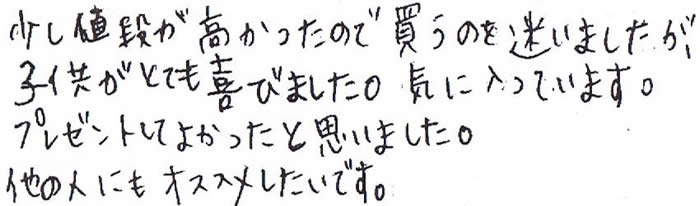 少し値段が高かったので買うのを迷いましたが、
子供がとても喜びました。気に入っています。
プレゼントしてよかったと思いました。
他の人にもオススメしたいです。